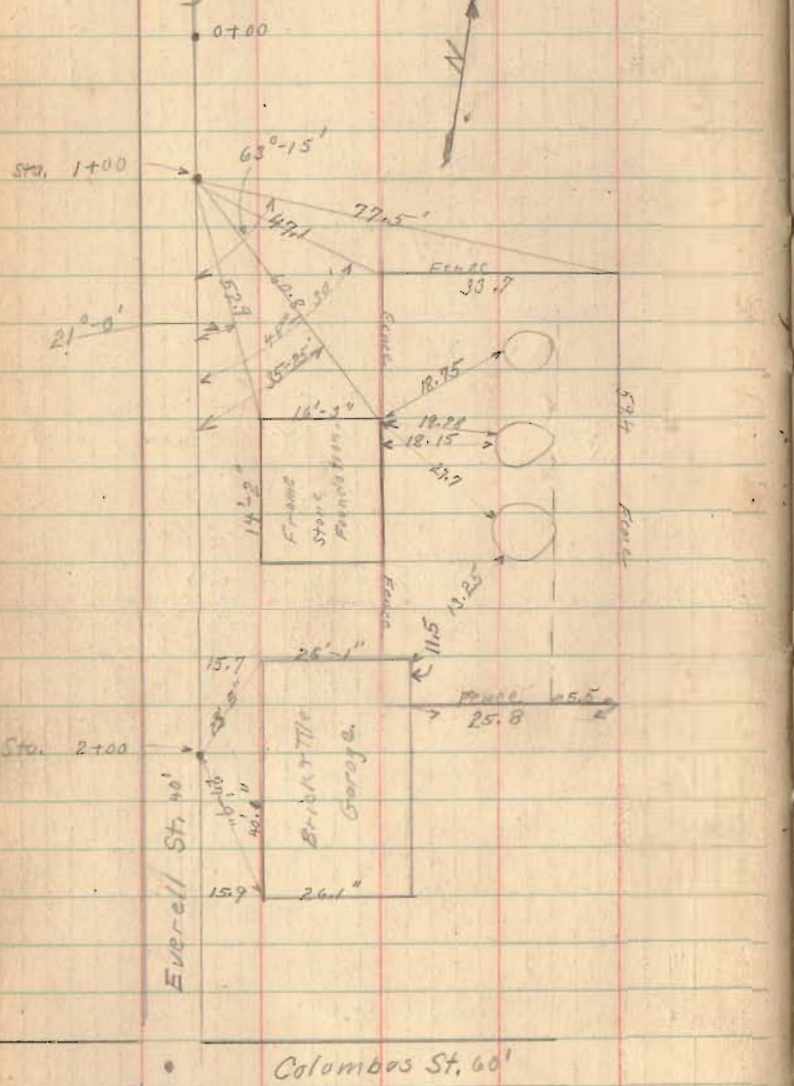 0+00
N
Sta. 1+00
63°-15'
77.5'
47.1
Fence
33.7
52.9
60.8
48°-30'
21°-0'
35-25'
Fence
18.75
16'-3"
19.28
18.15
27.7
59.4
14'-2"
Frame
Stone
Foundation.
Fence
Fence
13.25
11.5
15.7
26'-1"
Fence
5.5
25.8
Sta. 2+00
Brick & Tile
Garage.
40.1"
Everell St. 40'
15.9
26.1"
Columbos St. 60'